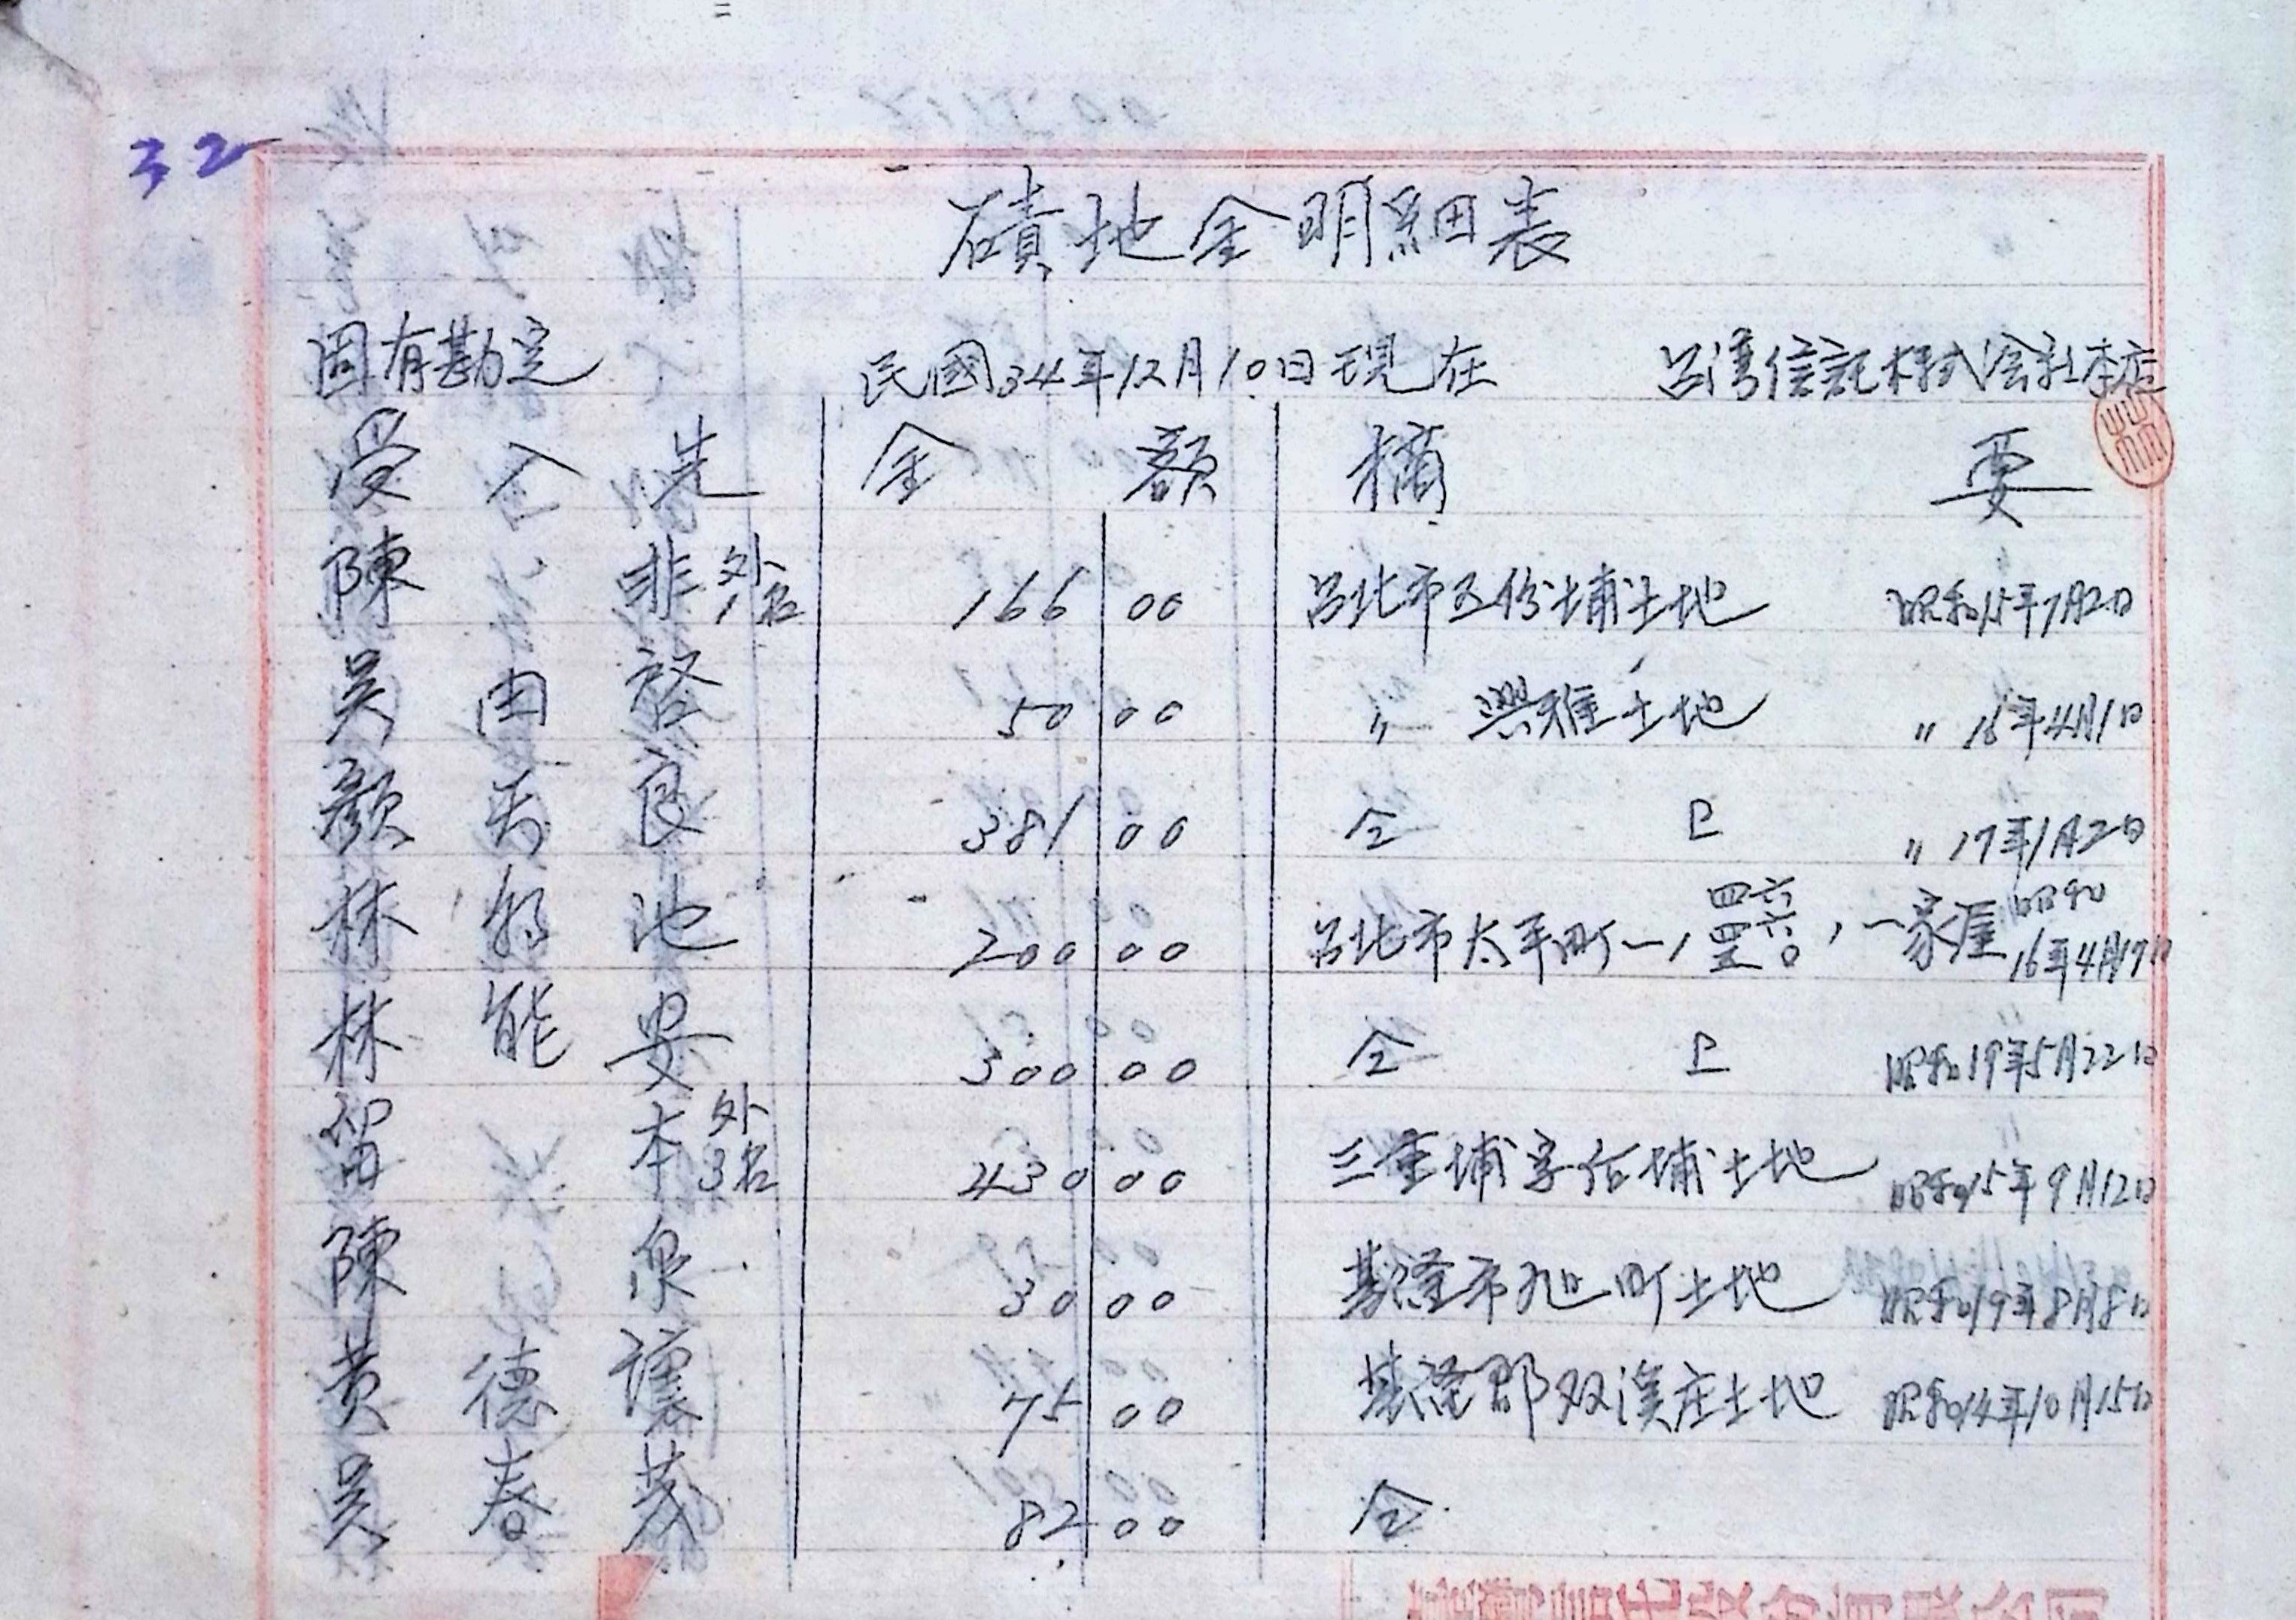 32
磧地金明細表
固有勘定 民國34年12月10日現在 台湾信託株式会社本店
受入先 金額 摘要
陳非 外1名 166 00 台北市五份埔土地 昭和15年7月2日
吳由裕 50 00 〃 興雅土地 〃 16年4月1日
顏天良 381 00 仝 上 〃 17年1月2日
林 池 200 00 台北市太平町一ノ四六、四六、五〇、一家屋 昭和16年4月19日
林能 300 00 仝 上 昭和19年5月22日
留本 外3名 430 00 三重埔字 埔土地 昭和15年9月12日
陳泉 30 00 基隆市旭町土地 昭和19年8月8日
黃德讓 75 00 基隆郡双溪庄土地 昭和14年10月15日
吳春茂 82 00 仝